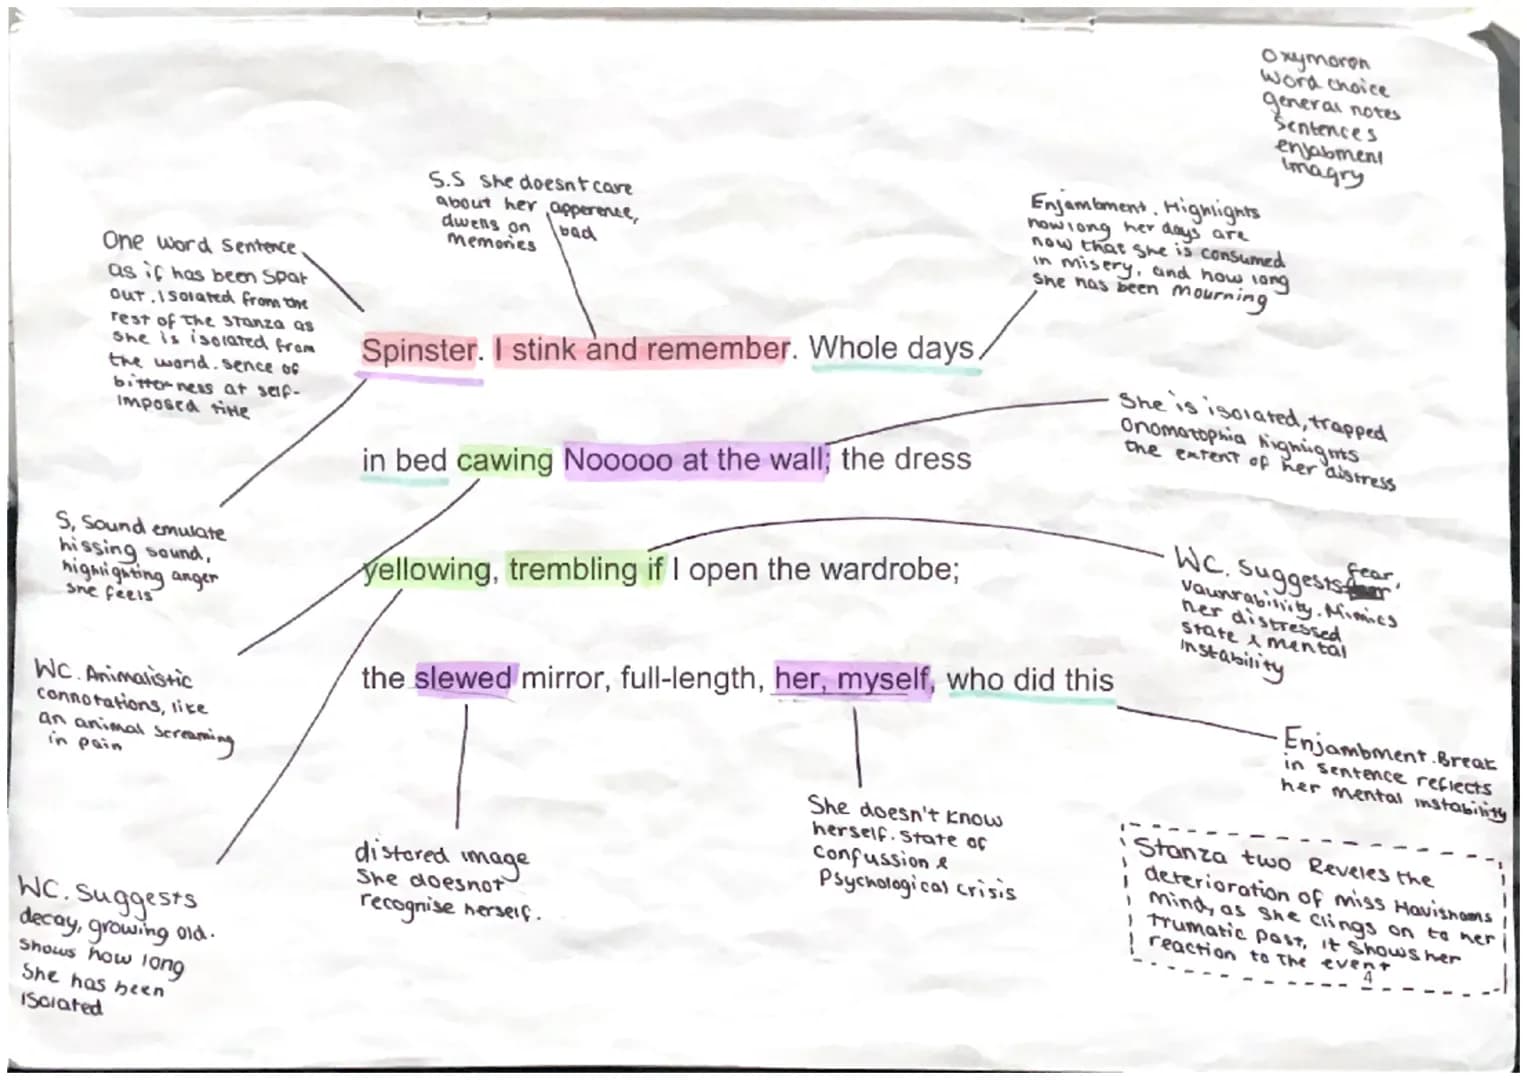 Oxymoron
Word choice
general notes
Sentences
enjabment
Imagry
S.S she doesnt care
about her apperence,
dwells on bad
memories
Enjambment. Highlights
how long her days are
now that she is consumed
in misery, and how long
she has been mourning
One word sentence
as if has been spat
out. Isolated from the
rest of the stanza as
she is isolated from
the world. sence of
bitterness at self-
imposed title
Spinster. I stink and remember. Whole days
in bed cawing Nooooo at the wall; the dress
yellowing, trembling if I open the wardrobe;
the slewed mirror, full-length, her, myself, who did this
She is isolated, trapped
Onomatophia highlights
the extent of her distress
S, Sound emulate
hissing sound,
highlighting anger
she feels
WC. Suggests fear,
vaunrability. Mimics
her distressed
state & mental
instability
WC. Animalistic
connotations, like
an animal screaming
in pain
Enjambment. Break
in sentence reflects
her mental instability
distored image
She doesnot
recognise herself.
She doesn't know
herself. State of
confussion &
Psychological crisis
WC. Suggests
decay, growing old.
Shows how long
She has been
isolated
Stanza two Reveles the
deterioration of miss Havishams
mind, as she clings on to her
trumatic past, it shows her
reaction to the event
4